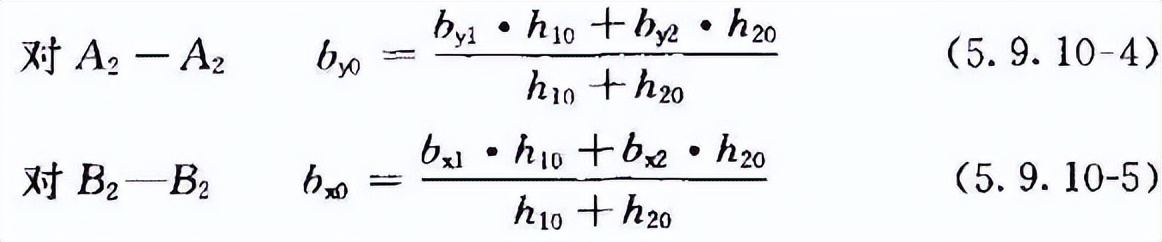 对 A₂—A₂ b_{y0} = \frac{b_{y1} • h_{10} + b_{y2} • h_{20}}{h_{10} + h_{20}} (5. 9. 10-4)
对 B₂—B₂ b_{x0} = \frac{b_{x1} • h_{10} + b_{x2} • h_{20}}{h_{10} + h_{20}} (5. 9. 10-5)